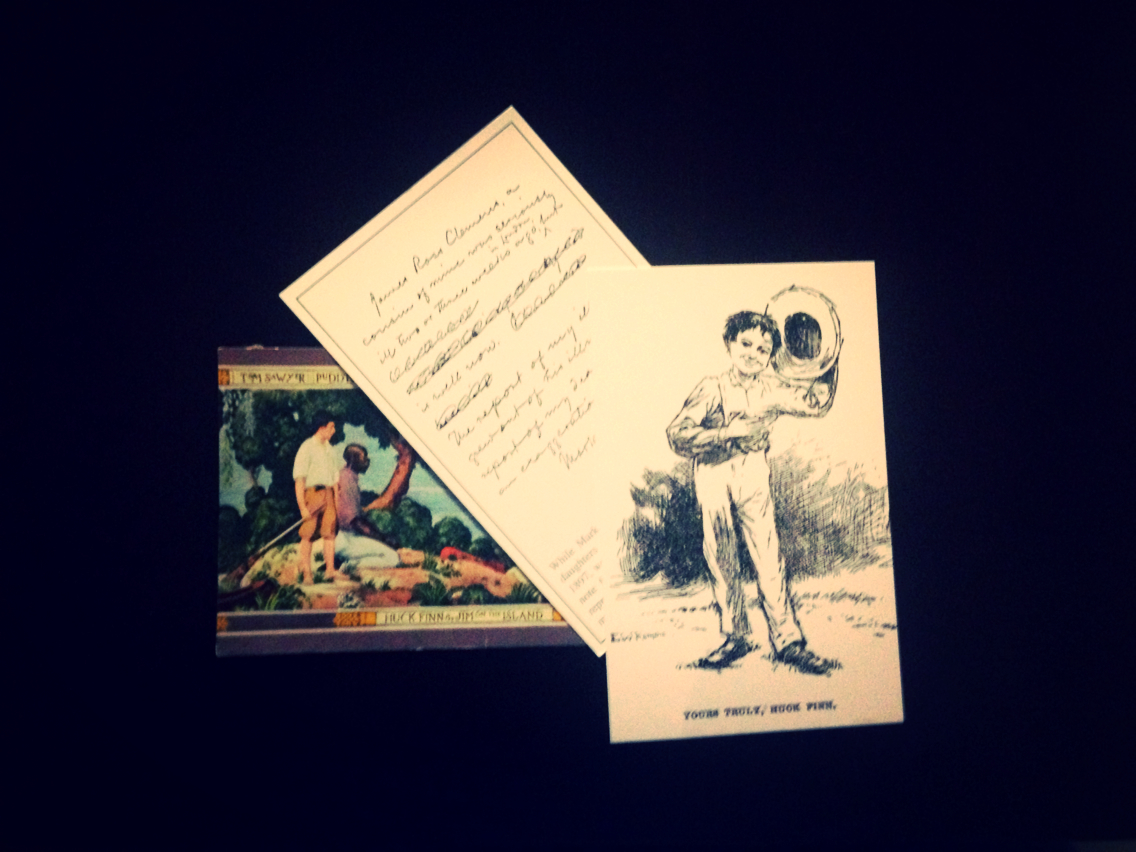 TOM SAWYER PUDD
HUCK FINN AND JIM ON THE ISLAND
James Ross Clemens, a
cousin of mine was seriously
ill two or three weeks ago, in London, but
is well now.
The report of my il
grew out of his illn
report of my dea
an exaggeratio
Mar
While Mark
daughters
1897, w
note
repo
E.W. Kemble
YOURS TRULY, HUCK FINN.